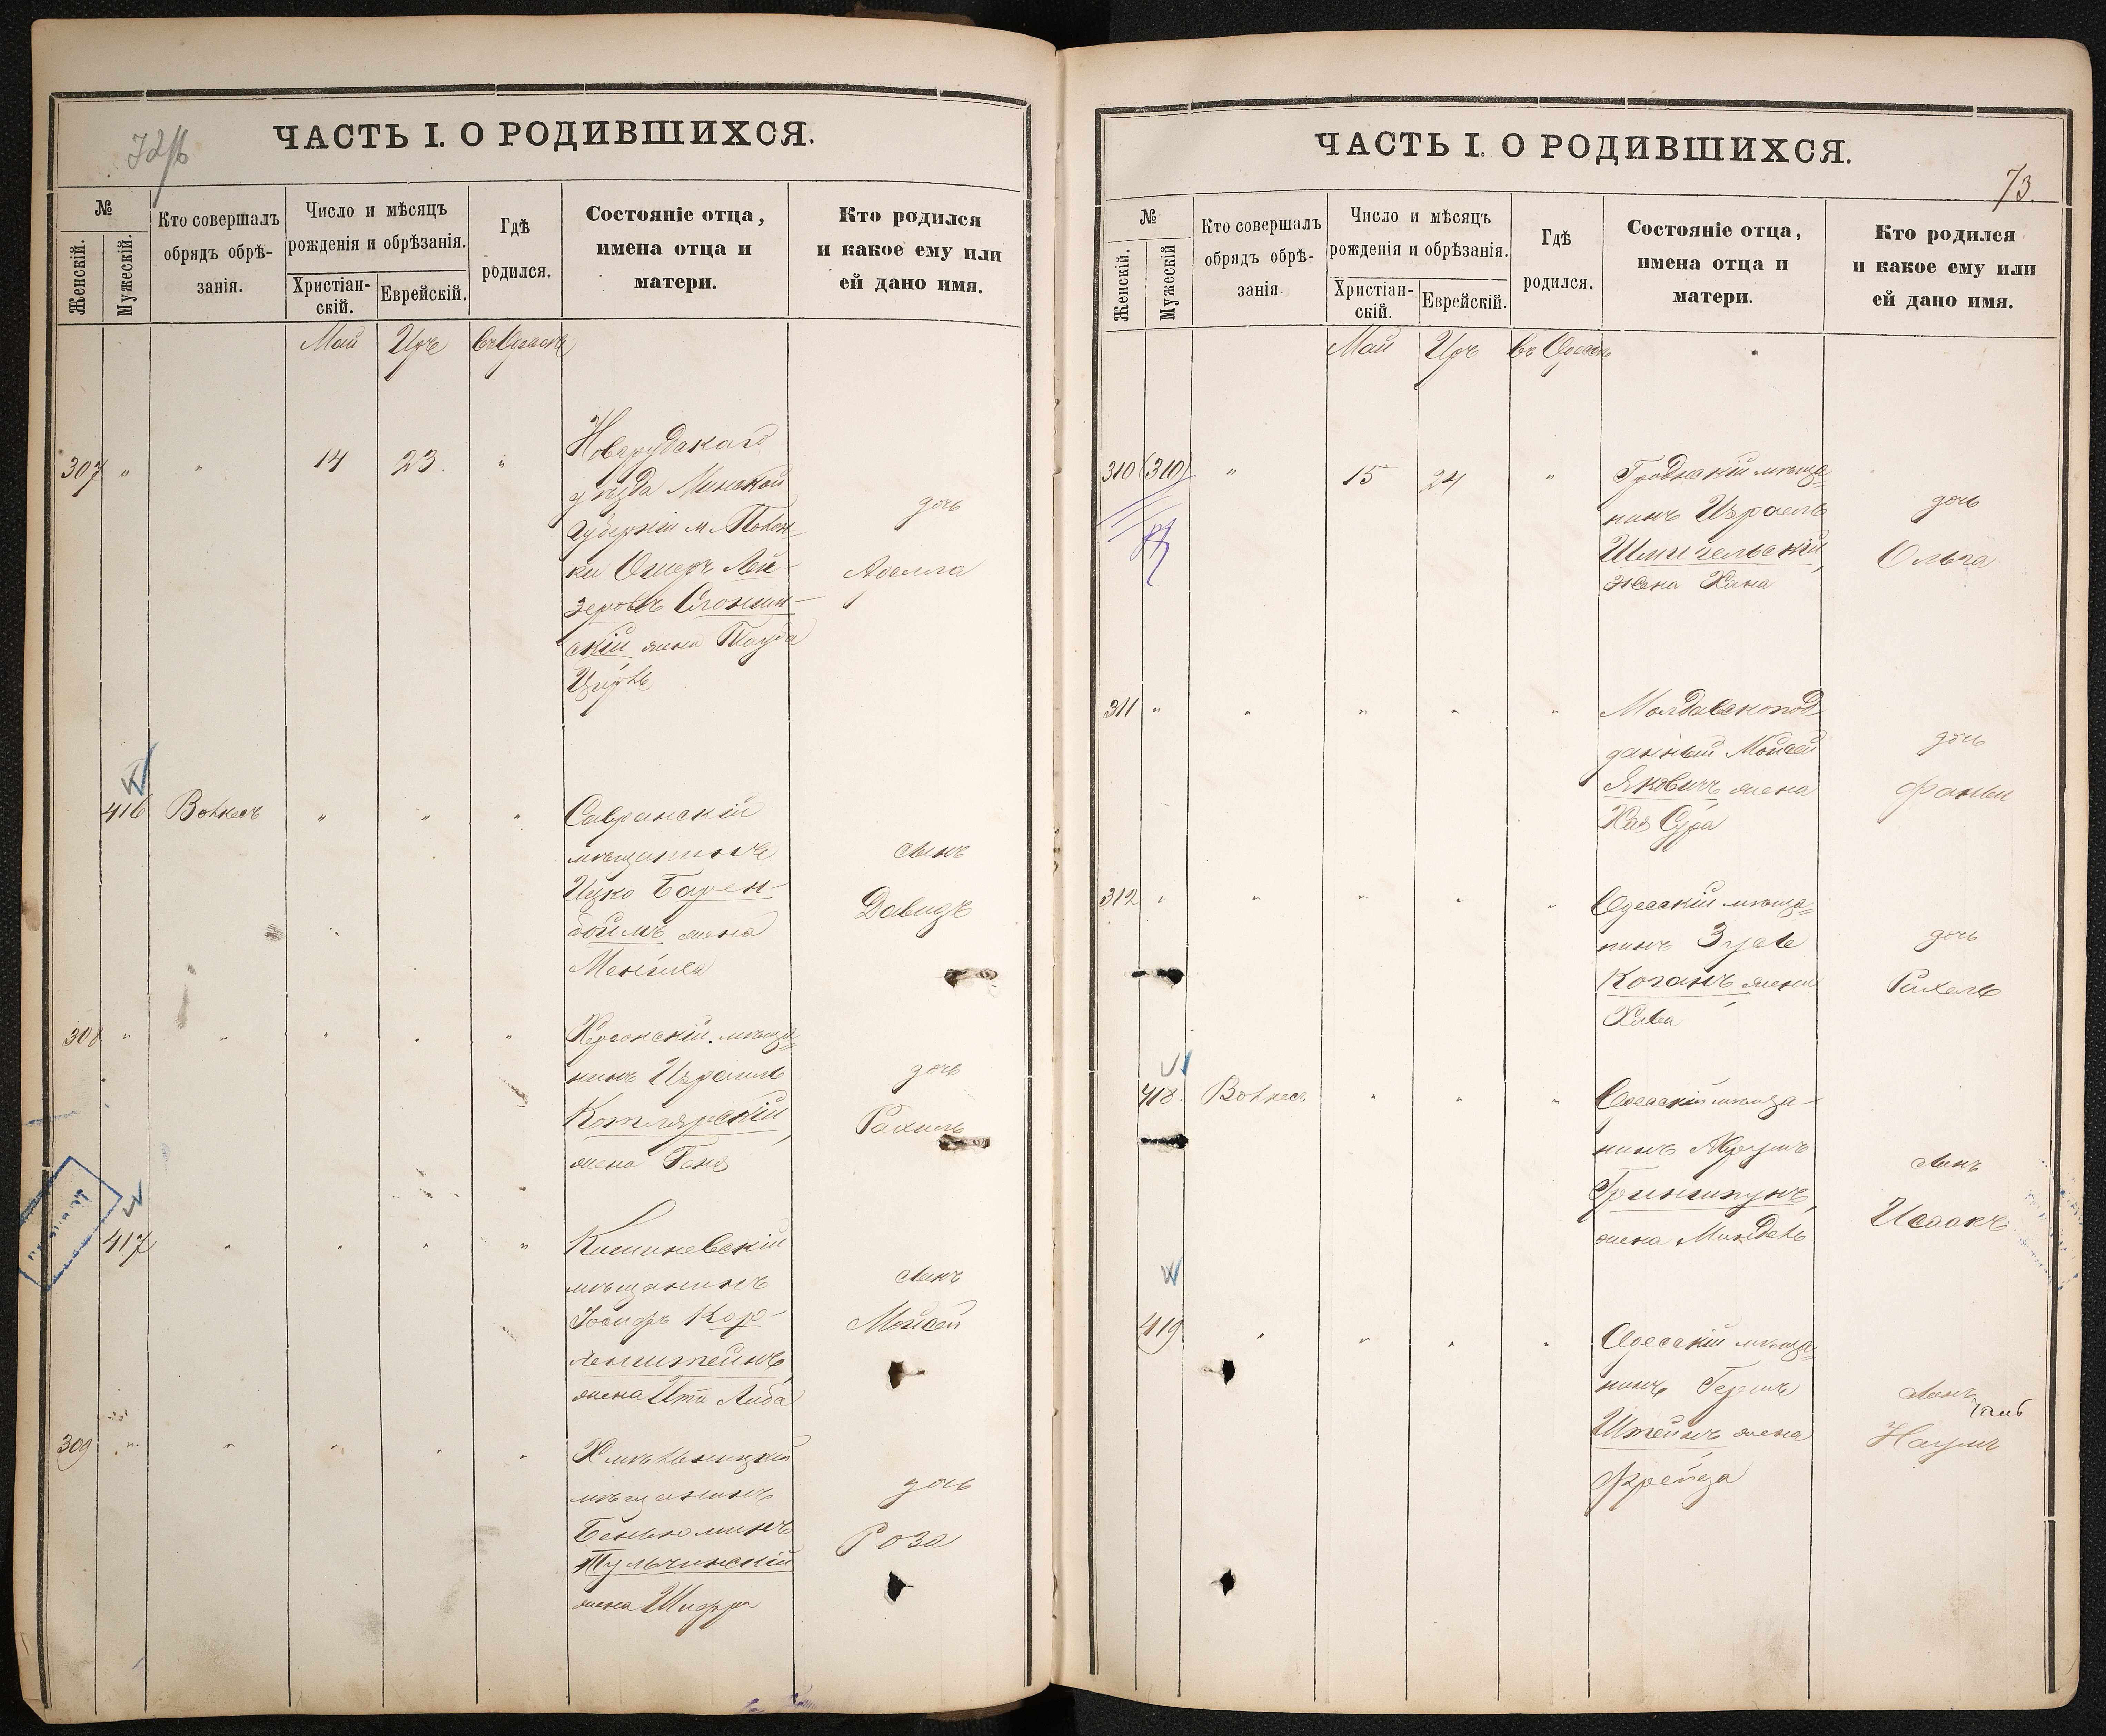 ЧАСТЬ I. О РОДИВШИХСЯ.
№
Женскій.
Мужескій.
Кто совершалъ
обрядъ обрѣ-
занія.
Число и мѣсяцъ
рожденія и обрѣзанія.
Христіан-
скій.
Еврейскій.
Гдѣ
родился.
Состояніе отца,
имена отца и
матери.
Кто родился
и какое ему или
ей дано имя.
Май Иръ въ Одессѣ
307 " " 14 23. "
Новогрудскаго
уѣзда Минской
губерніи м.
ки Ошеръ Лей-
зеровъ Слоним-
скій жена Тауба
дочь
Аделла
416 Волкесъ " " "
Савранскій
мѣщанинъ
Ицко Барен-
боймъ жена
сынъ
Давидъ
308 " " " " "
Херсонскій мѣща=
нинъ Израиль
Котлярскій,
жена Геня
дочь
Рахиль
417 " " " "
Кишиневскій
мѣщанинъ
Іосифъ Кор-
ленштейнъ,
жена Ита Либа
сынъ
Мойсей
309 " " " " "
Хмѣльницкій
мѣщанинъ
Беньюминъ
Тульчинскій
жена Шифра
дочь
Роза
ЧАСТЬ I. О РОДИВШИХСЯ.
73.
№
Женскій.
Мужескій
Кто совершалъ
обрядъ обрѣ-
занія
Число и мѣсяцъ
рожденія и обрѣзанія.
Христіан-
скій.
Еврейскій.
Гдѣ
родился.
Состояніе отца,
имена отца и
матери.
Кто родился
и какое ему или
ей дано имя.
Май Иръ въ Одессѣ
310 (310) " 15 24 "
Гродскій мѣща=
нинъ Израель
Шмигельскій,
жена Хана
дочь
Ольга
311 " " " " "
Молдавскопод
данный Мойсей
Яковичъ жена
Хая Сура
дочь
Фаньи
312 " " " " "
Одесскій мѣща=
нинъ Зусь
Коганъ жена
Хава
дочь
Рахель
418. Волкесъ " " "
Одесскій мѣща-
нинъ Аврумъ
Гриншпунъ,
жена Миндель
сынъ
Исаакъ
419 " " " "
Одесскій мѣща=
нинъ Гершъ
Штейнъ жена
Фрейда
сынъ
Наумъ